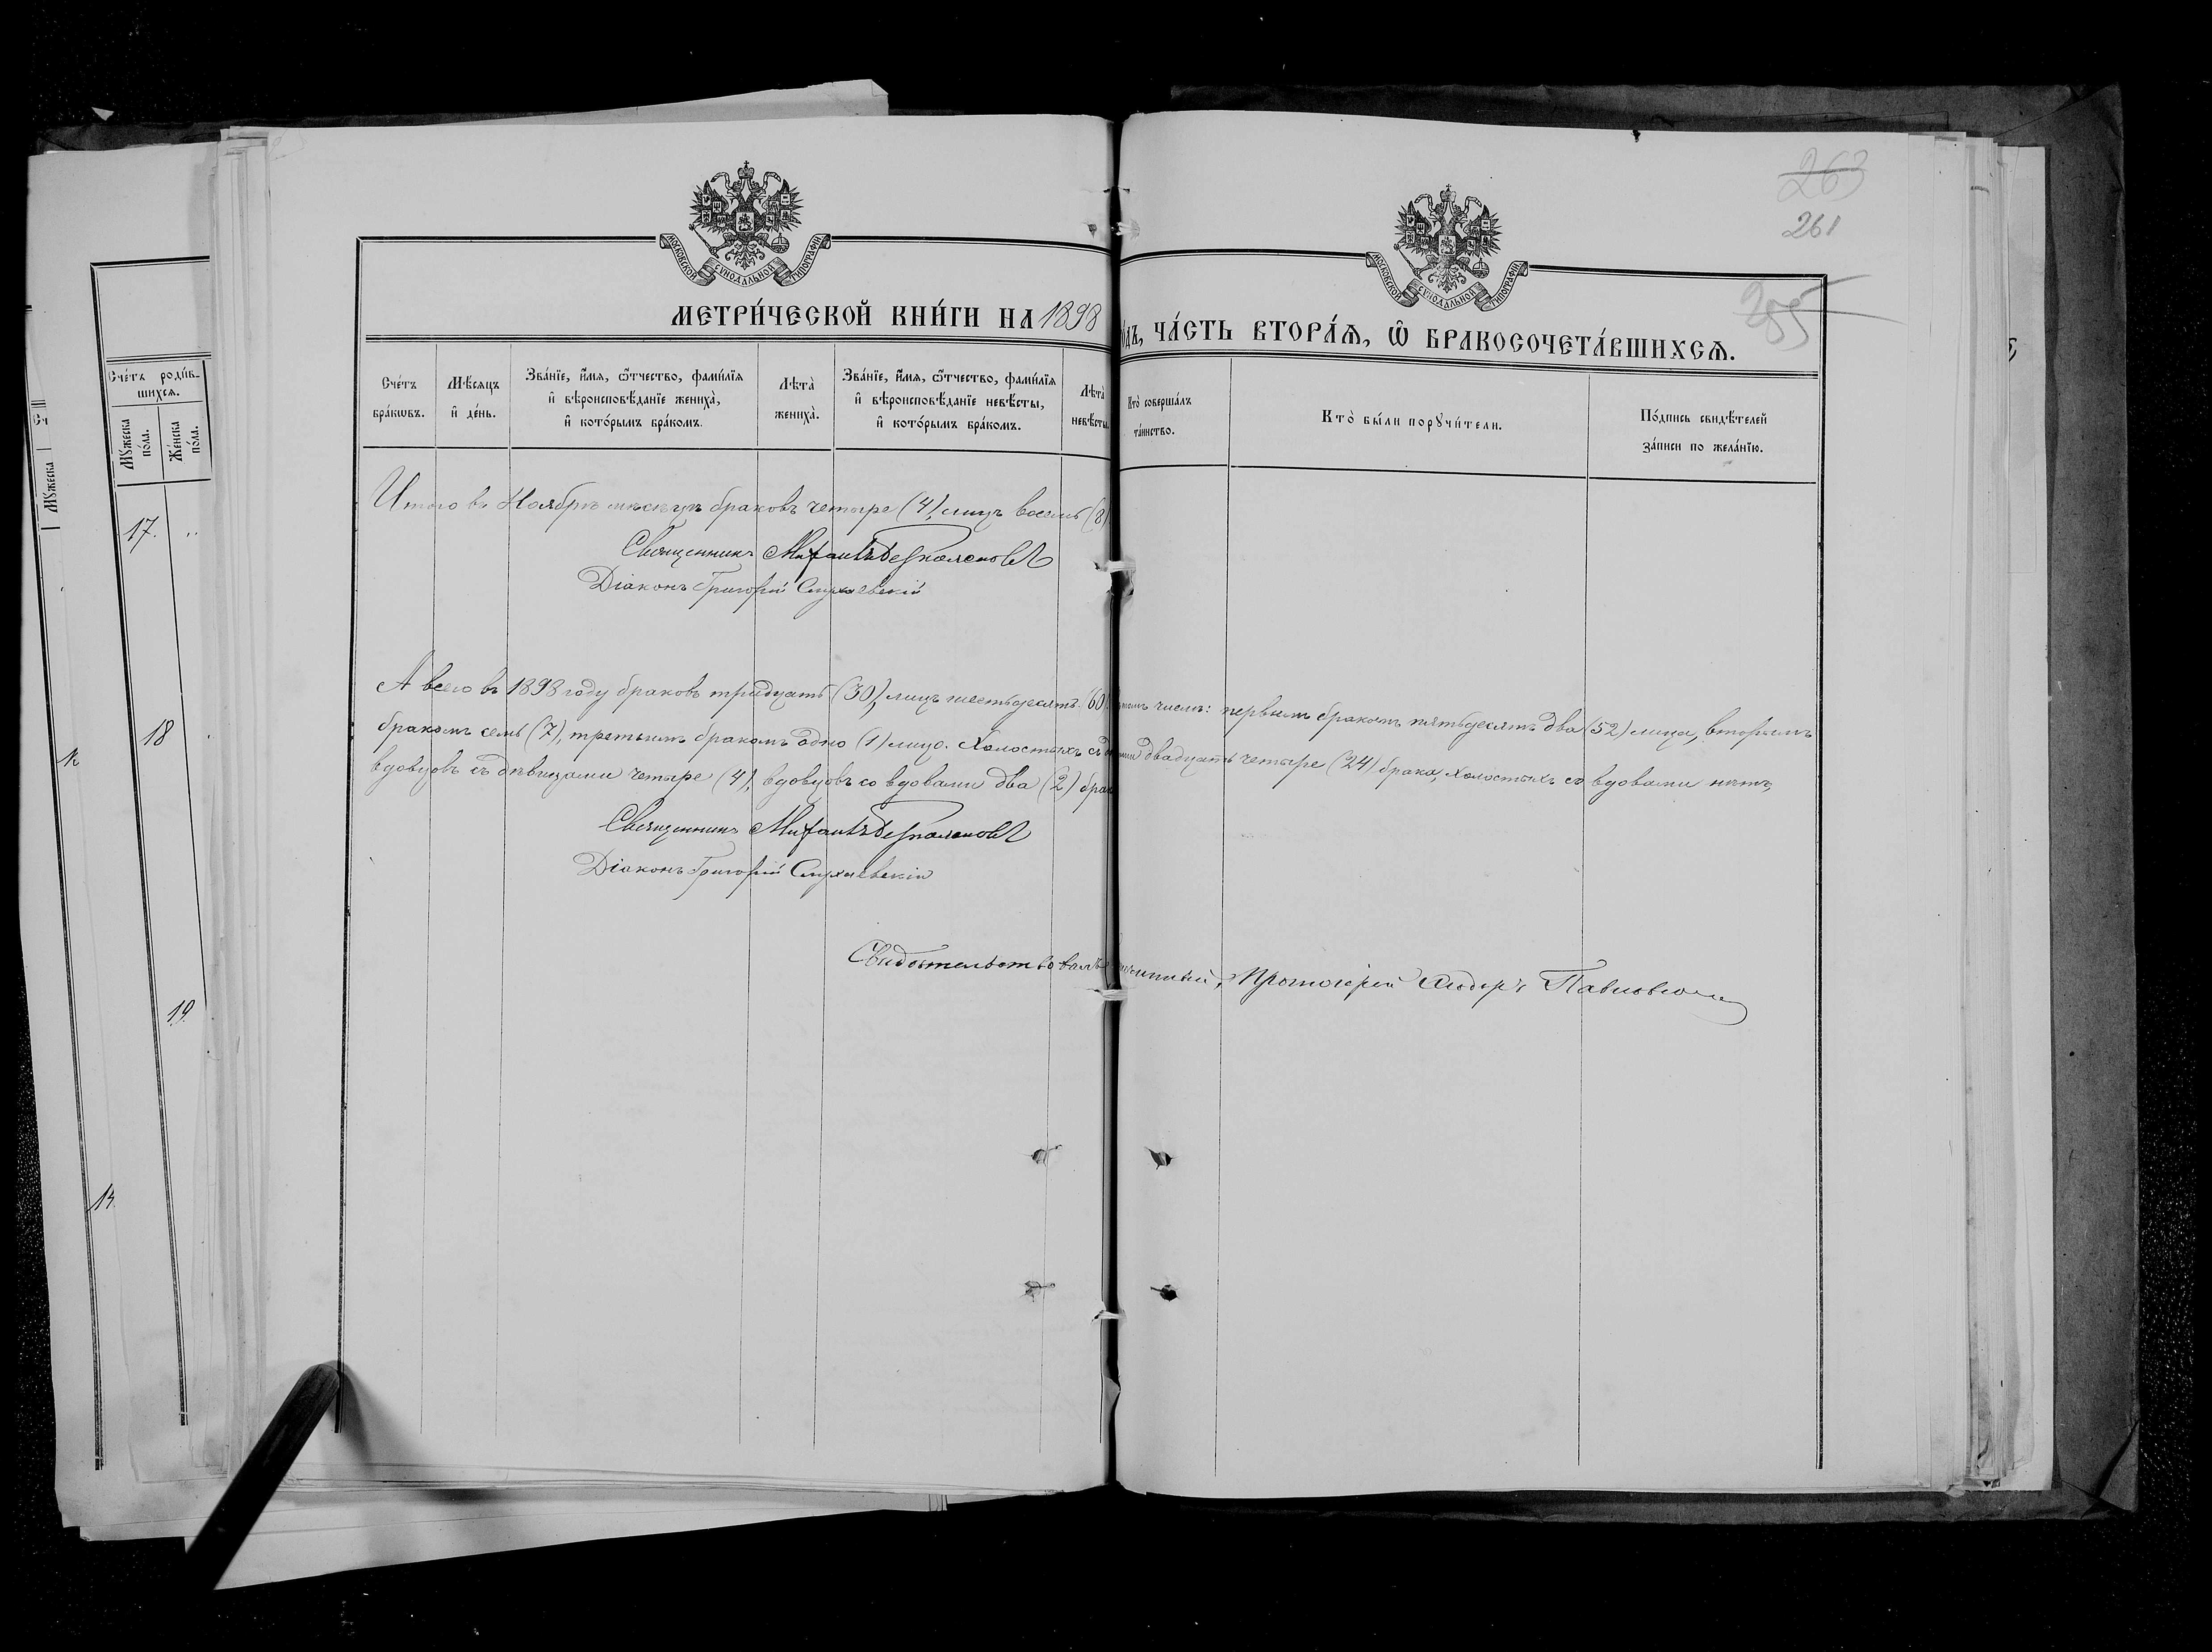 263
261
285
МОСКОВСКОЙ СУНОДАЛЬНОЙ ТИПОГРАФІИ
МОСКОВСКОЙ СУНОДАЛЬНОЙ ТИПОГРАФІИ
МЕТРИ́ЧЕСКОЙ КНИ́ГИ НА 1898
ѻ́дъ, ЧА́СТЬ ВТОРА́Ѧ, Ѡ҆ БРАКОСОЧЕТА́ВШИХСѦ.
Сче́тъ бра́кѡвъ.
Мѣ́сѧцъ и҆ де́нь.
Зва́нїе, и҆́мѧ, ѻ҆́тчество, фами́лїѧ и҆ вѣроисповѣ́данїе жениха̀, и҆ кото́рымъ бра́комъ.
Лѣта̀ жениха̀.
Зва́нїе, и҆́мѧ, ѻ҆́тчество, фами́лїѧ и҆ вѣроисповѣ́данїе невѣ́сты, и҆ кото́рымъ бра́комъ.
Лѣта̀ невѣ́сты.
Кто̀ соверша́лъ та́инство.
Кто̀ бы́ли порꙋчи́тели.
По́дпись свидѣ́телей за́писи по жела́нїю.
Итого въ Ноябрѣ мѣсяцѣ браковъ четыре (4), лицъ восемь (8)
Священникъ Михаилъ
Діаконъ Григорій
А всего въ 1898 году браковъ тридцать (30), лицъ шестьдесятъ (60) томъ числѣ: первымъ бракомъ пятьдесятъ два (52) лица, вторымъ
бракомъ семь (7), третьимъ бракомъ одно (1) лицо. Холостыхъ съ двадцать четыре (24) брака, холостыхъ со вдовами нѣтъ,
вдовцовъ съ дѣвицами четыре (4), вдовцовъ со вдовами два (2) брак
Священникъ Михаилъ
Діаконъ Григорій
Свидѣтельствовалъ Протоіерей
Сче́тъ роди́в-
шихсѧ.
Мꙋ́жеска по́ла.
Же́нска по́ла.
Мꙋ́жеска
17.
18
19
14